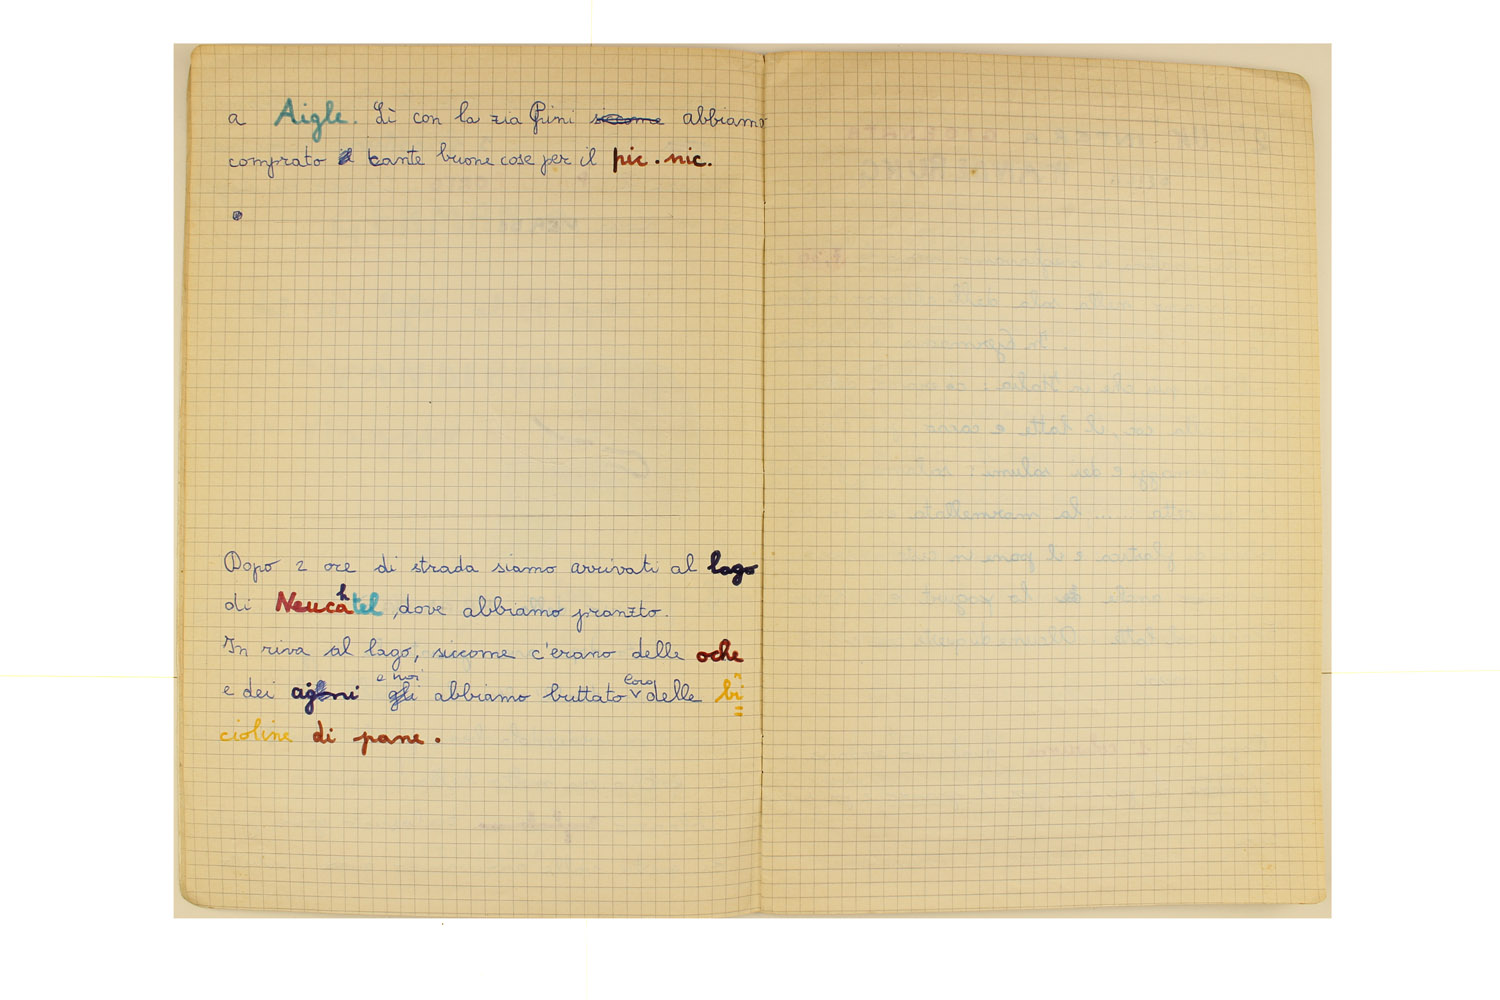 a Aigle. Lì con la zia Pini siccome abbiamo
comprato tante buone cose per il pic. nic.
Dopo 2 ore di strada siamo arrivati al lago
di Neucahtel, dove abbiamo pranzto.
In riva al lago, siccome c'erano delle oche
e dei e noi abbiamo buttato loro delle bri=
cioline di pane.